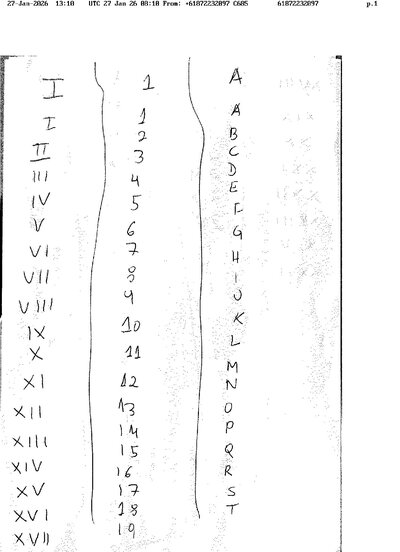 27-Jan-2026 13:10 UTC 27 Jan 26 08:10 From: +61872232097 C685 61872232097 p.1
I
I
II
III
IV
V
VI
VII
VIII
IX
X
XI
XII
XIII
XIV
XV
XVI
XVII
1
1
2
3
4
5
6
7
8
9
10
11
12
13
14
15
16
17
18
19
A
A
B
C
D
E
F
G
H
I
J
K
L
M
N
O
P
Q
R
S
T